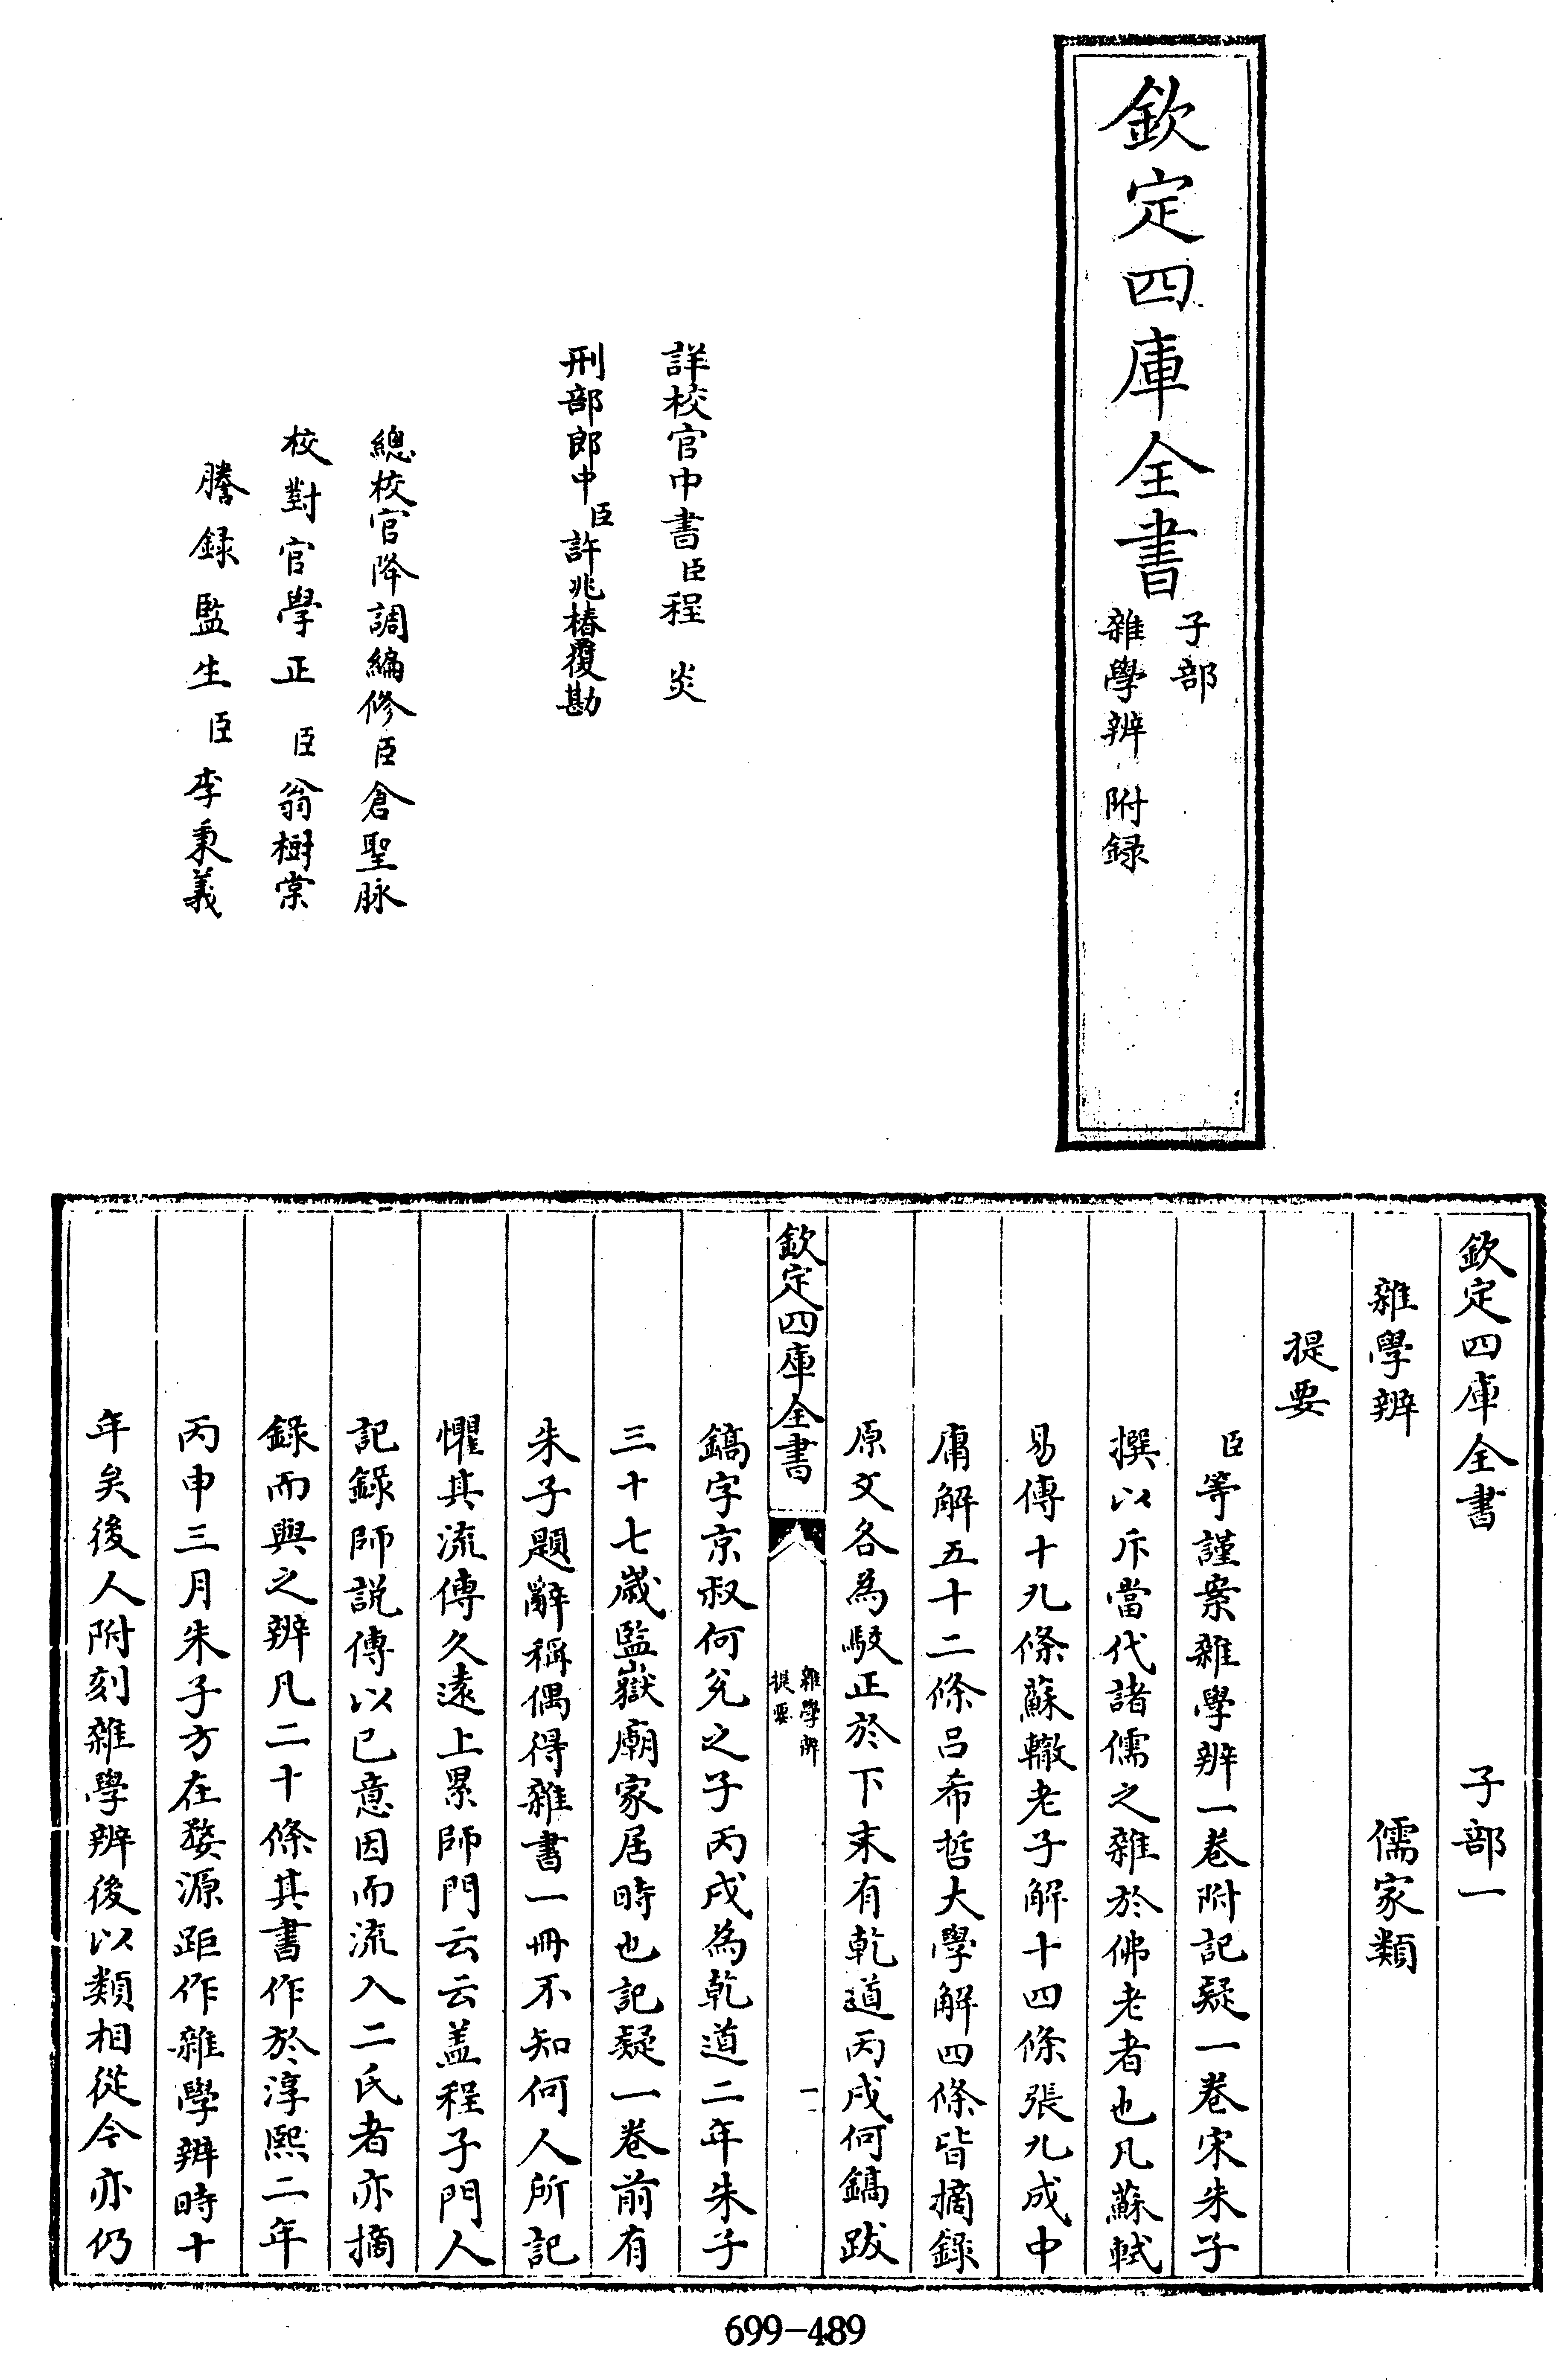 欽定四庫全書
子部
雜學辨 附録
詳校官中書臣程炎
刑部郎中臣許兆椿覆勘
總校官降調編修臣倉聖脉
校對官學正臣翁樹棠
謄録監生臣李秉義
欽定四庫全書 子部一
雜學辨 儒家類
提要
臣等謹案雜學辨一卷附記疑一卷宋朱子
撰以斥當代諸儒之雜於佛老者也凡蘇軾
易傳十九條蘇轍老子解十四條張九成中
庸解五十二條吕希哲大學解四條皆摘録
原文各為駮正於下末有乾道丙戌何鎬跋
欽定四庫全書
雜學辨
提要
一
鎬字京叔何兊之子丙戌為乾道二年朱子
三十七嵗監嶽廟家居時也記疑一卷前有
朱子題辭稱偶得雜書一冊不知何人所記
懼其流傳久遠上累師門云云盖程子門人
記録師説傳以已意因而流入二氏者亦摘
録而與之辨凡二十條其書作於淳熙二年
丙申三月朱子方在婺源距作雜學辨時十
年矣後人附刻雜學辨後以類相從今亦仍
699-489